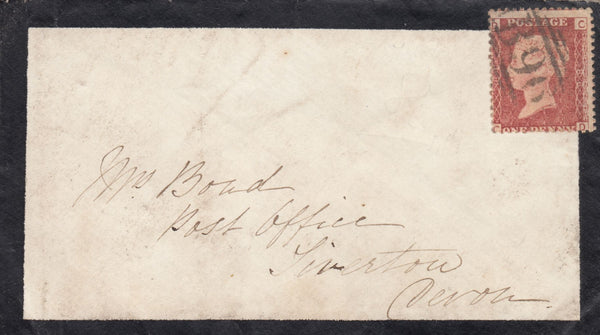 POSTAGE
ONE PENNY
Mrs Bond
Post Office
Tiverton
Devon